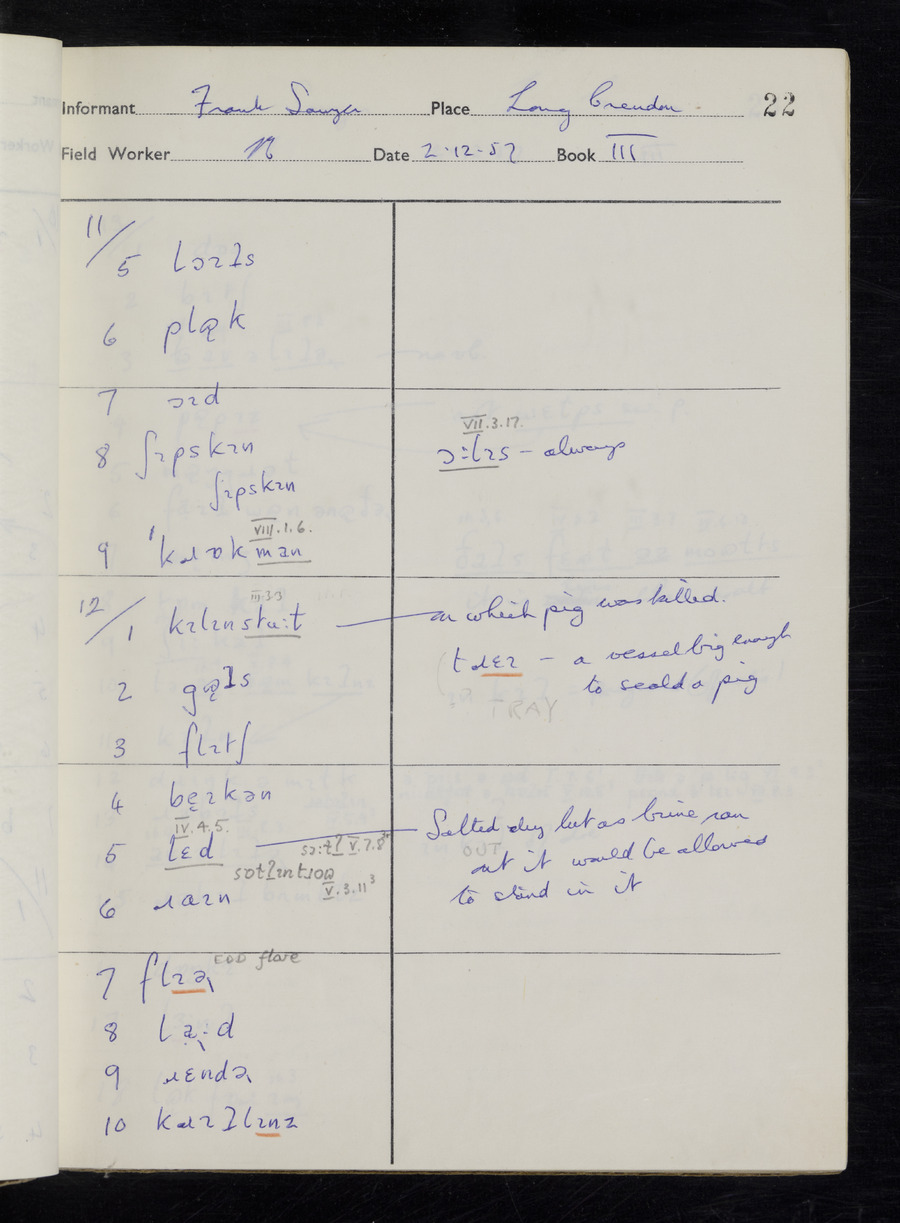 Informant Frank Sawyer Place Long Crendon 22
Field Worker Date 2.12.57 Book III
11/
5 lɔɪɫs
6 plæ̨k
7 ɔɪd
8 ʃɪpskɪn
ʃɪpskɪn
VII.3.17.
ɔ:lɪs – always
VIII.1.6.
9 ˈkɹɒkman
12/
III.3.3
1 kɪlɪnstu:t
on which pig was killed.
tɹɛɪ – a vessel big enough
to scald a pig
TRAY
2 gæ̨ɫs
3 flɪtʃ
4 bę̈ɪkən
IV.4.5.
5 lɛd
sɔ:tɫ V.7.8
Salted dry but as brine ran
out it would be allowed
to stand in it
OUT
V.3.11³
6 ɹaɪn
EDD flare
7 flɪə
8 la:d
9 ɹɛndə
10 kɹɪɫlɪnz